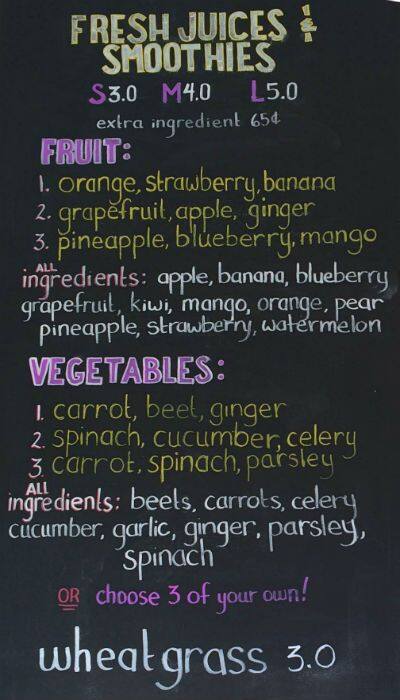 FRESH JUICES &
SMOOTHIES
S3.0 M4.0 L5.0
extra ingredient 65¢
FRUIT:
1. orange, strawberry, banana
2. grapefruit, apple, ginger
3. pineapple, blueberry, mango
ALL
ingredients: apple, banana, blueberry
grapefruit, kiwi, mango, orange, pear
pineapple, strawberry, watermelon
VEGETABLES:
1. carrot, beet, ginger
2. spinach, cucumber, celery
3 carrot, spinach, parsley
ALL
ingredients: beets, carrots, celery
cucumber, garlic, ginger, parsley,
spinach
OR choose 3 of your own!
wheatgrass 3.0